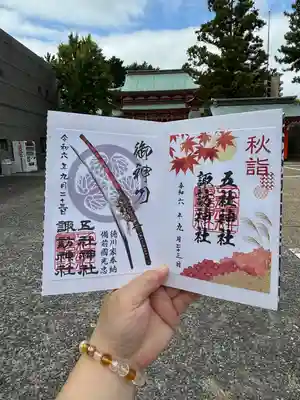 秋詣
五社神社
諏訪神社
令和六年九月二十三日
御神刀
徳川家奉納
備前國光忠
令和六年九月二十三日
五社神社
諏訪神社